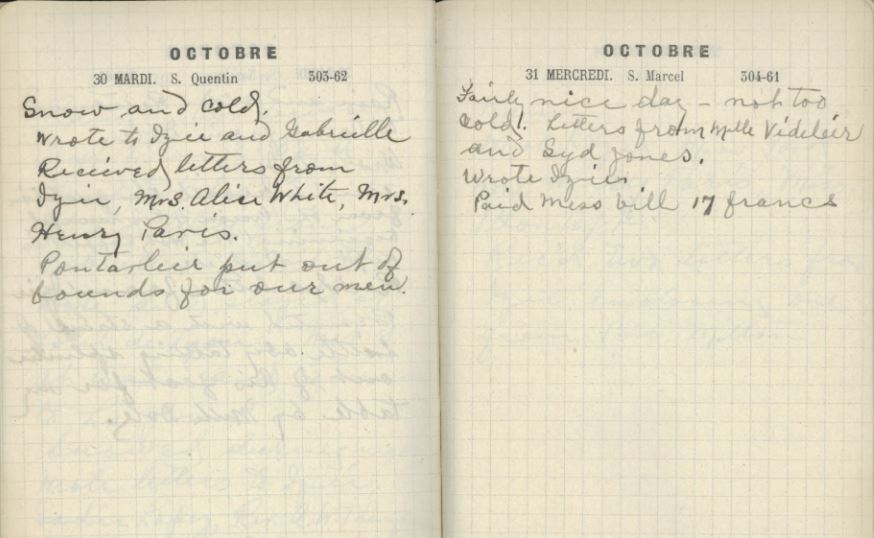 OCTOBRE
30 MARDI. S. Quentin 303-62
Snow and cold.
Wrote to Izzie and Gabrielle
Received letters from
Izzie, Mrs. Alice White, Mrs.
Henry Paris.
Pontarlier put out of
bounds for our men.
OCTOBRE
31 MERCREDI. S. Marcel 304-61
Fairly nice day - not too
cold. Letters from Mlle
and Syd Jones.
Wrote Izzie.
Paid Mess bill 17 francs